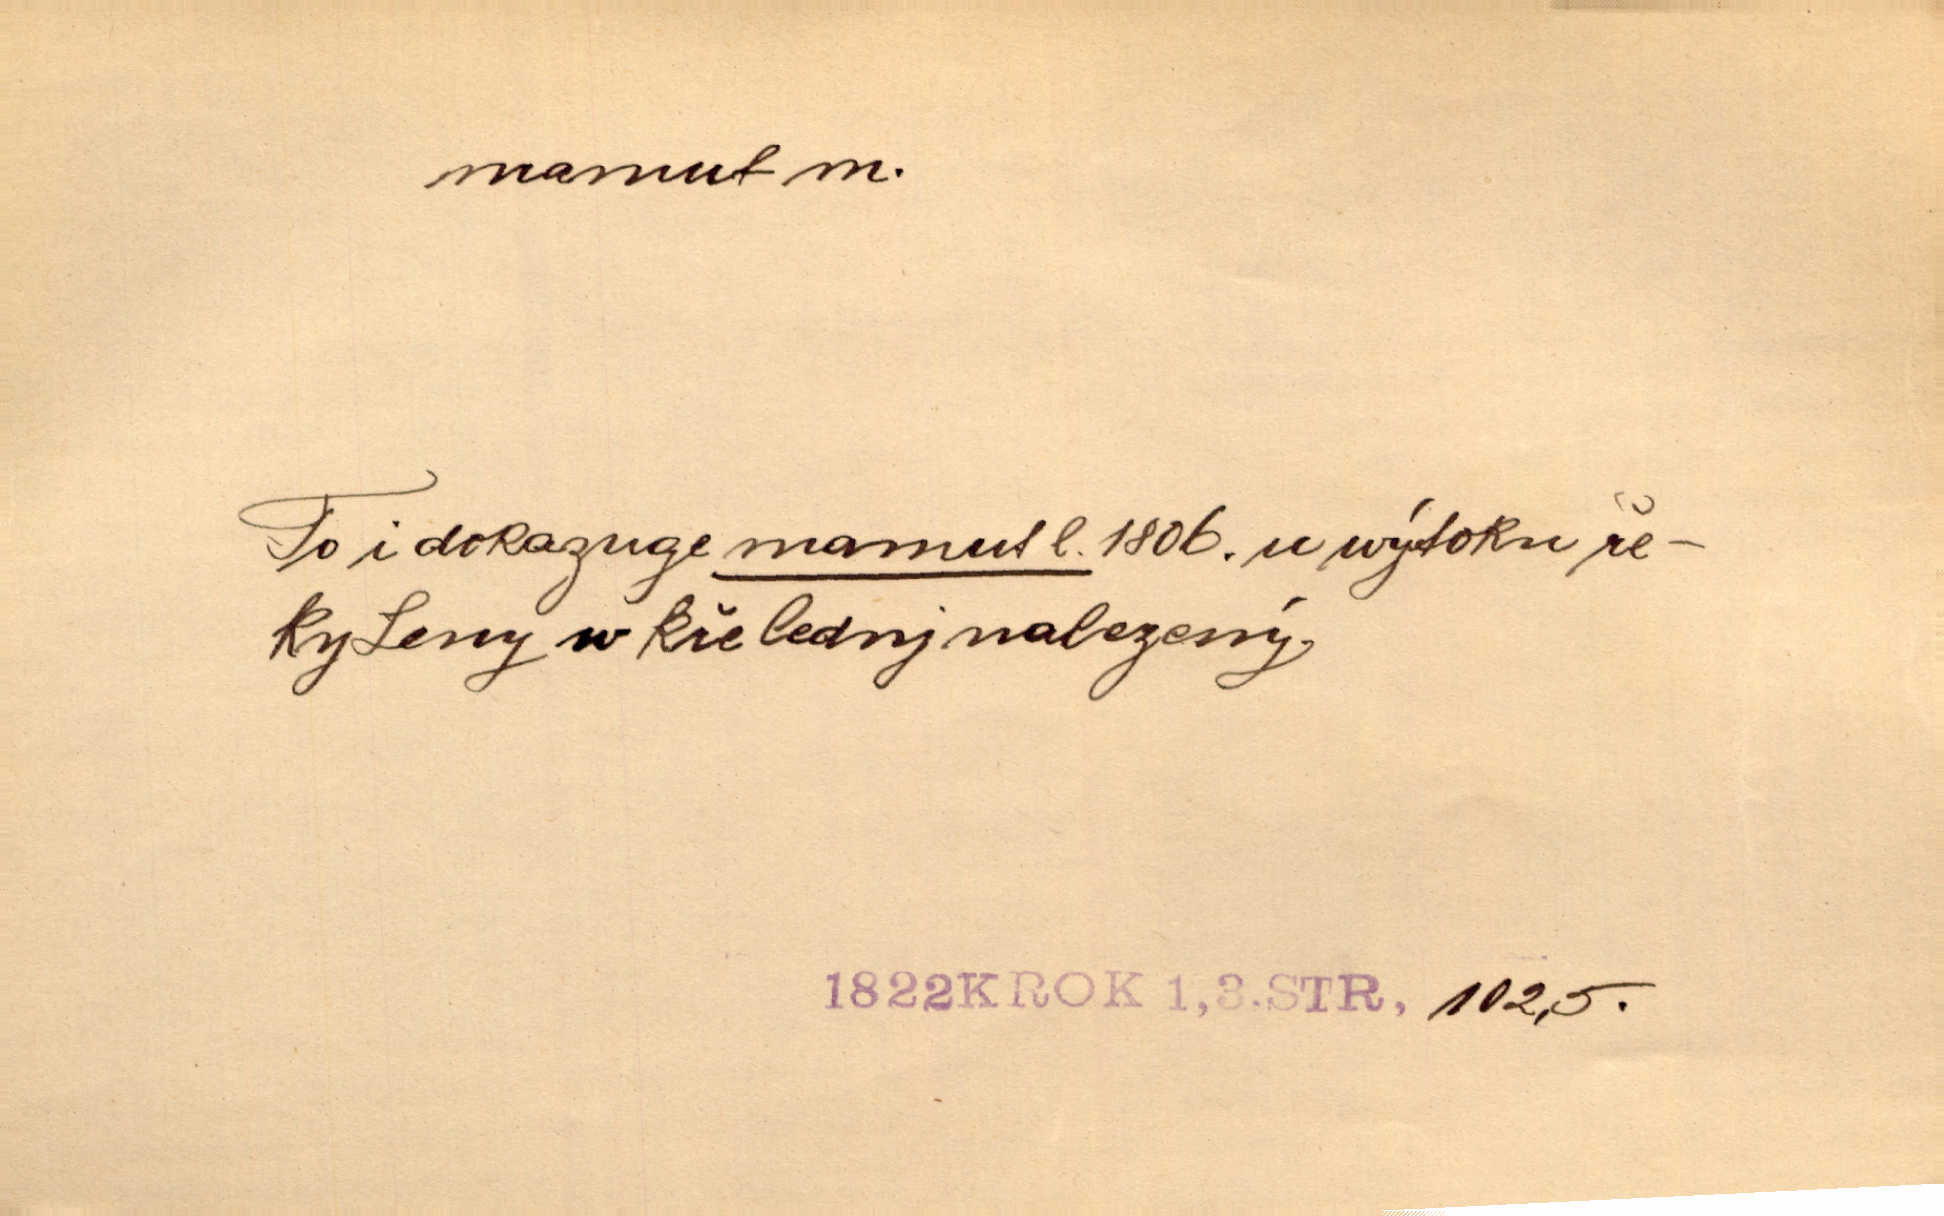 mamut m.
To i dokazuge mamut l. 1806. u wýtoku ře-
ky Leny w kře lednj nalezený.
1822 KROK 1,3.STR, 102,5.